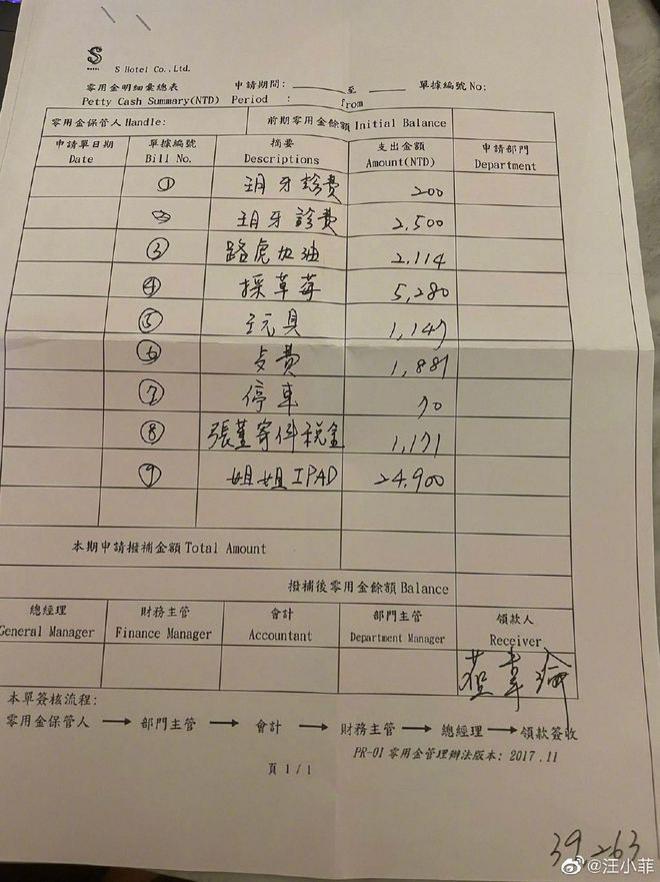 S
HOTEL
S Hotel Co.,Ltd.
零用金明細彙總表 申請期間: 至 單據編號 No:
Petty Cash Summary(NTD) Period : from
零用金保管人 Handle: 前期零用金餘額 Initial Balance
申請單日期 單據編號 摘要 支出金額 申請部門
Date Bill No. Descriptions Amount(NTD) Department
① 玥牙診費 200
② 玥牙診費 2,500
③ 路虎加油 2,114
④ 採草莓 5,280
⑤ 玩具 1,147
⑥ 費 1,881
⑦ 停車 70
⑧ 張董寄件稅金 1,171
⑨ 姐姐IPAD 24,900
本期申請撥補金額 Total Amount
撥補後零用金餘額 Balance
總經理 財務主管 會計 部門主管 領款人
General Manager Finance Manager Accountant Department Manager Receiver
本單簽核流程:
零用金保管人 → 部門主管 → 會計 → 財務主管 → 總經理 → 領款簽收
PR-01 零用金管理辦法版本: 2017.11
頁 1/1
39,263
@汪小菲